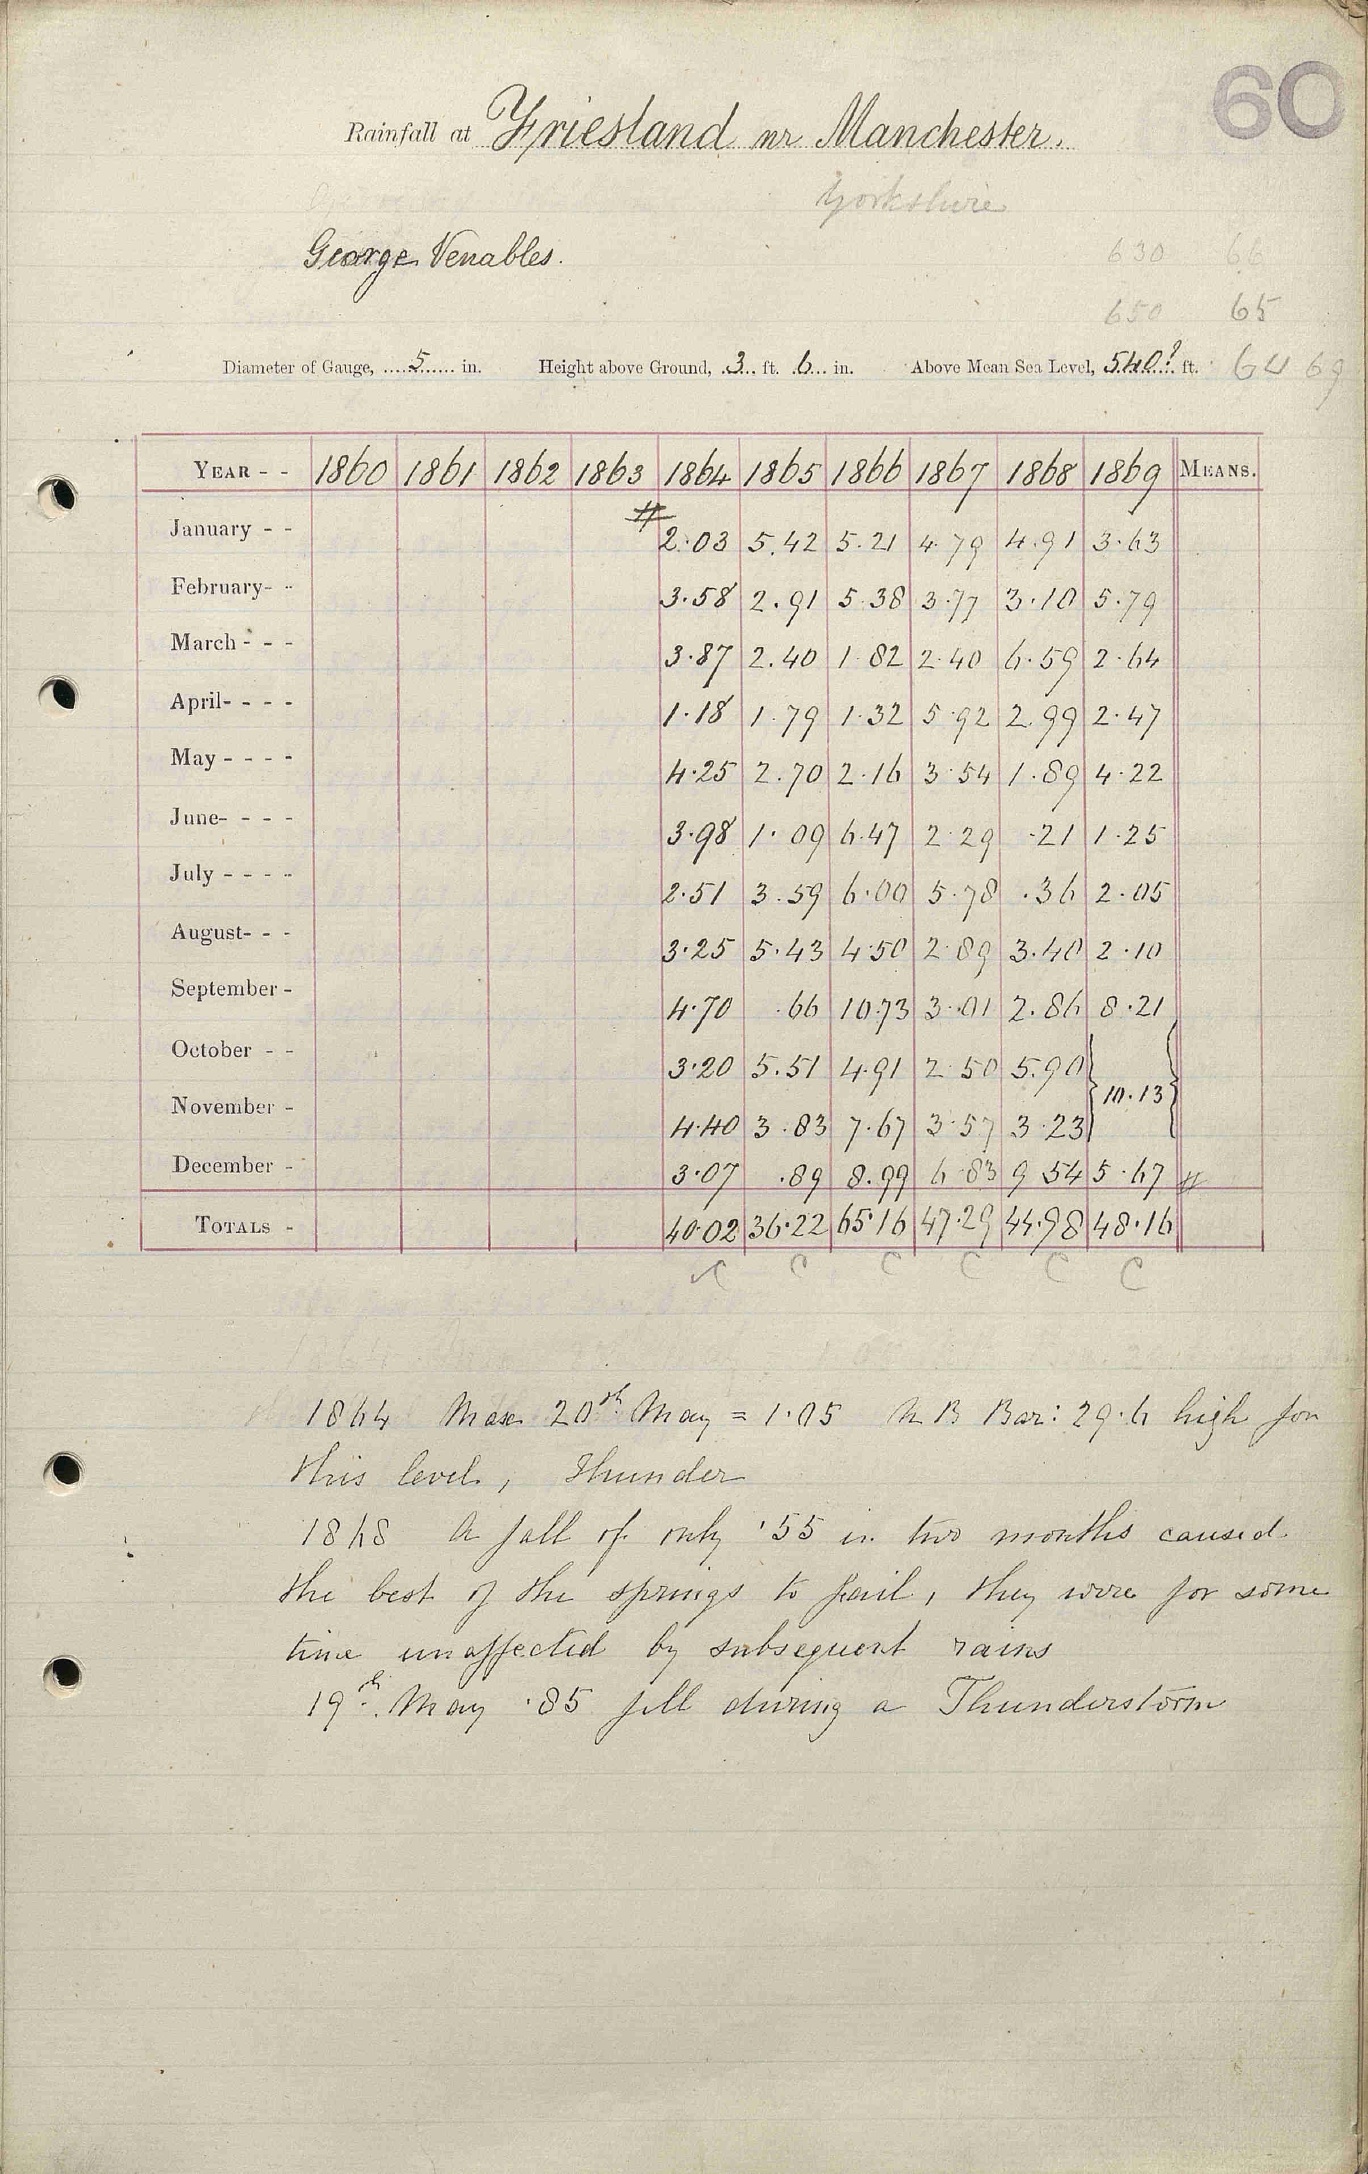 60
Rainfall at Friesland nr Manchester.
Yorkshire
George Venables.
630 66
650 65
Diameter of Gauge, 5 in. Height above Ground, 3 ft. 6 in. Above Mean Sea Level, 540? ft. 64 69
YEAR - - 1860 1861 1862 1863 1864 1865 1866 1867 1868 1869 MEANS.
January - - # 2.03 5.42 5.21 4.79 4.91 3.63
February- - 3.58 2.91 5.38 3.77 3.10 5.79
March - - - 3.87 2.40 1.82 2.40 6.59 2.64
April- - - - 1.18 1.79 1.32 5.92 2.99 2.47
May - - - - 4.25 2.70 2.16 3.54 1.89 4.22
June- - - - 3.98 1.09 6.47 2.29 .21 1.25
July - - - - 2.51 3.59 6.00 5.78 .36 2.05
August- - - 3.25 5.43 4.50 2.89 3.40 2.10
September - 4.70 .66 10.73 3.01 2.86 8.21
October - - 3.20 5.51 4.91 2.50 5.90
{10.13}
November - 4.40 3.83 7.67 3.57 3.23
December - 3.07 .89 8.99 6.83 9.54 5.67 #
TOTALS - 40.02 36.22 65.16 47.29 44.98 48.16
C C C C C C
1864 Max 20th May = 1.05 N B Bar: 29.6 high for
this level, Thunder
1868 A fall of only .55 in two months caused
the best of the springs to fail, they were for some
time unaffected by subsequent rains
19th May .85 fell during a Thunderstorm